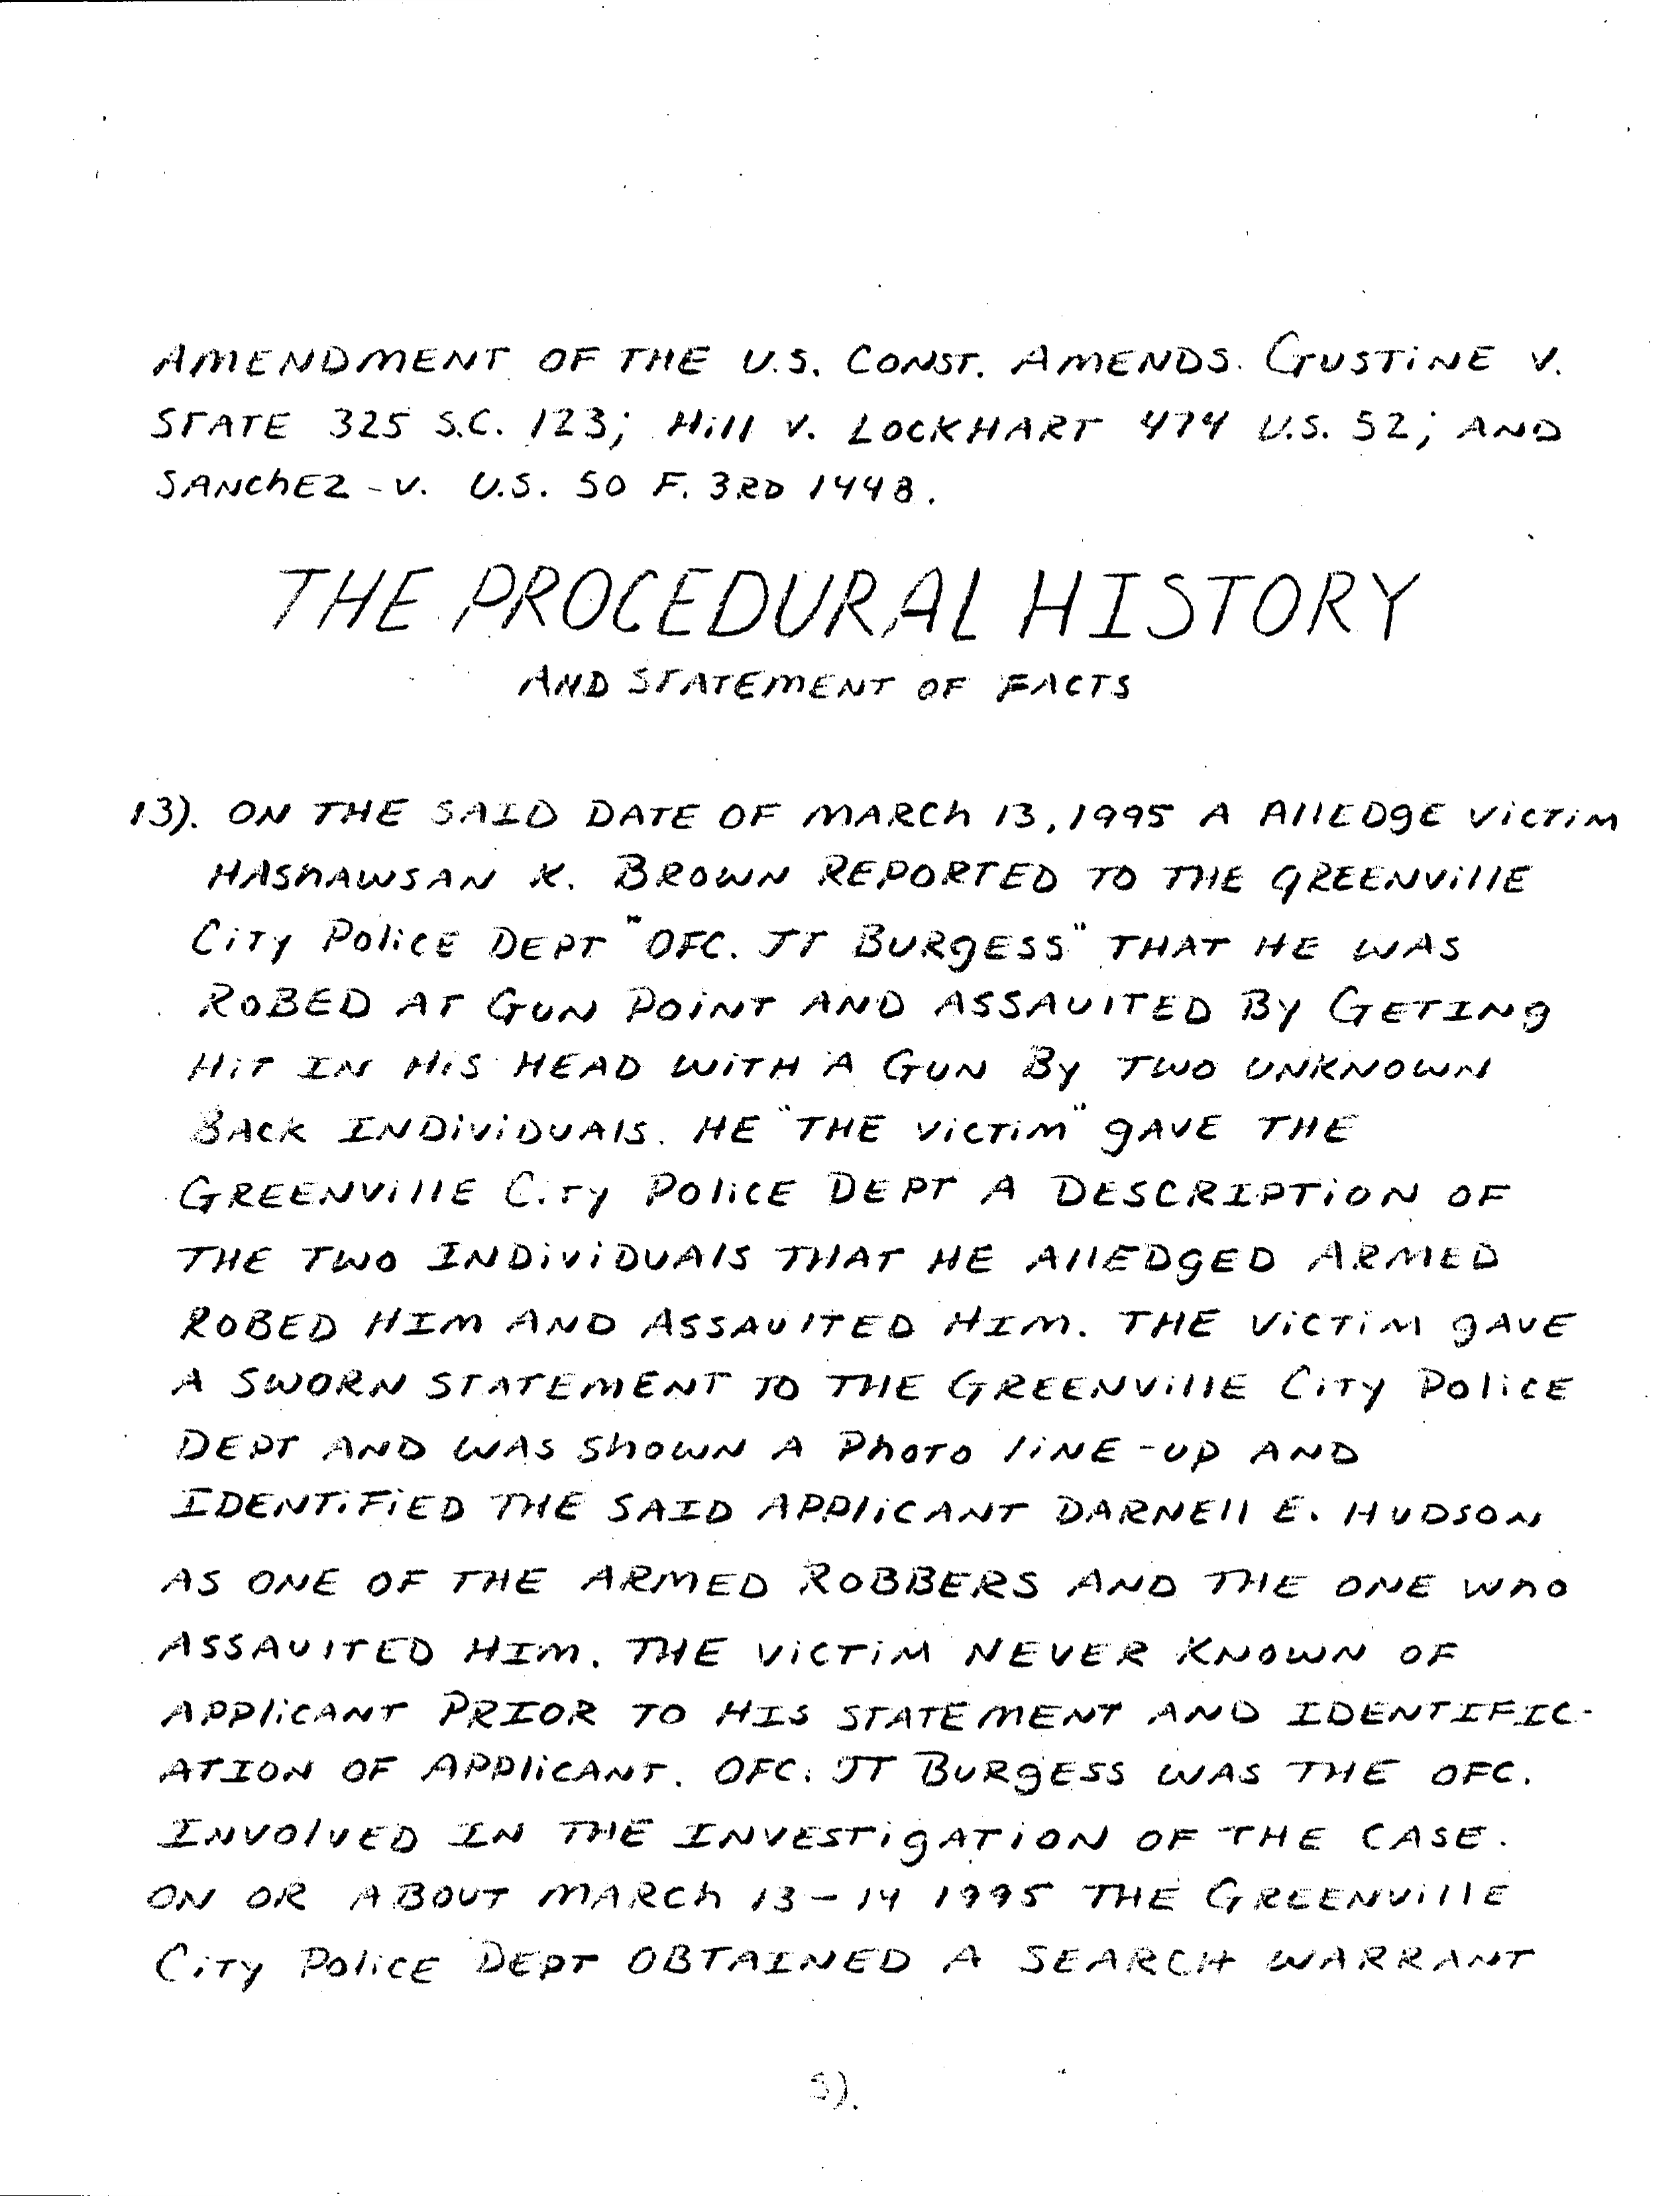 AMENDMENT OF THE U.S. CONST. AMENDS. GUSTINE V.
STATE 325 S.C. 123; Hill V. LOCKHART 474 U.S. 52; AND
SANCHEZ - V. U.S. 50 F. 3RD 1448.
THE PROCEDURAL HISTORY
AND STATEMENT OF FACTS
13). ON THE SAID DATE OF MARCH 13, 1995 A AllEDgE VICTIM
HASHAWSAN K. BROWN REPORTED TO THE GREENVillE
CITY POLICE DEPT "OFC. JT BURgESS" THAT HE WAS
ROBED AT GUN POINT AND ASSAULTED BY GETING
HIT IN HIS HEAD WITH A GUN BY TWO UNKNOWN
BACK INDIVIDUALS. HE "THE VICTIM" GAVE THE
GREENVILLE CITY POLICE DEPT A DESCRIPTION OF
THE TWO INDIVIDUALS THAT HE ALLEDGED ARMED
ROBED HIM AND ASSAULTED HIM. THE VICTIM GAVE
A SWORN STATEMENT TO THE GREENVILLE CITY POLICE
DEPT AND WAS SHOWN A PHOTO LINE-UP AND
IDENTIFIED THE SAID APPLICANT DARNELL E. HUDSON
AS ONE OF THE ARMED ROBBERS AND THE ONE WHO
ASSAULTED HIM. THE VICTIM NEVER KNOWN OF
APPLICANT PRIOR TO HIS STATEMENT AND IDENTIFIC-
ATION OF APPLICANT. OFC. JT BURGESS WAS THE OFC.
INVOLVED IN THE INVESTIGATION OF THE CASE.
ON OR ABOUT MARCH 13-14 1995 THE GREENVILLE
CITY POLICE DEPT OBTAINED A SEARCH WARRANT
5).